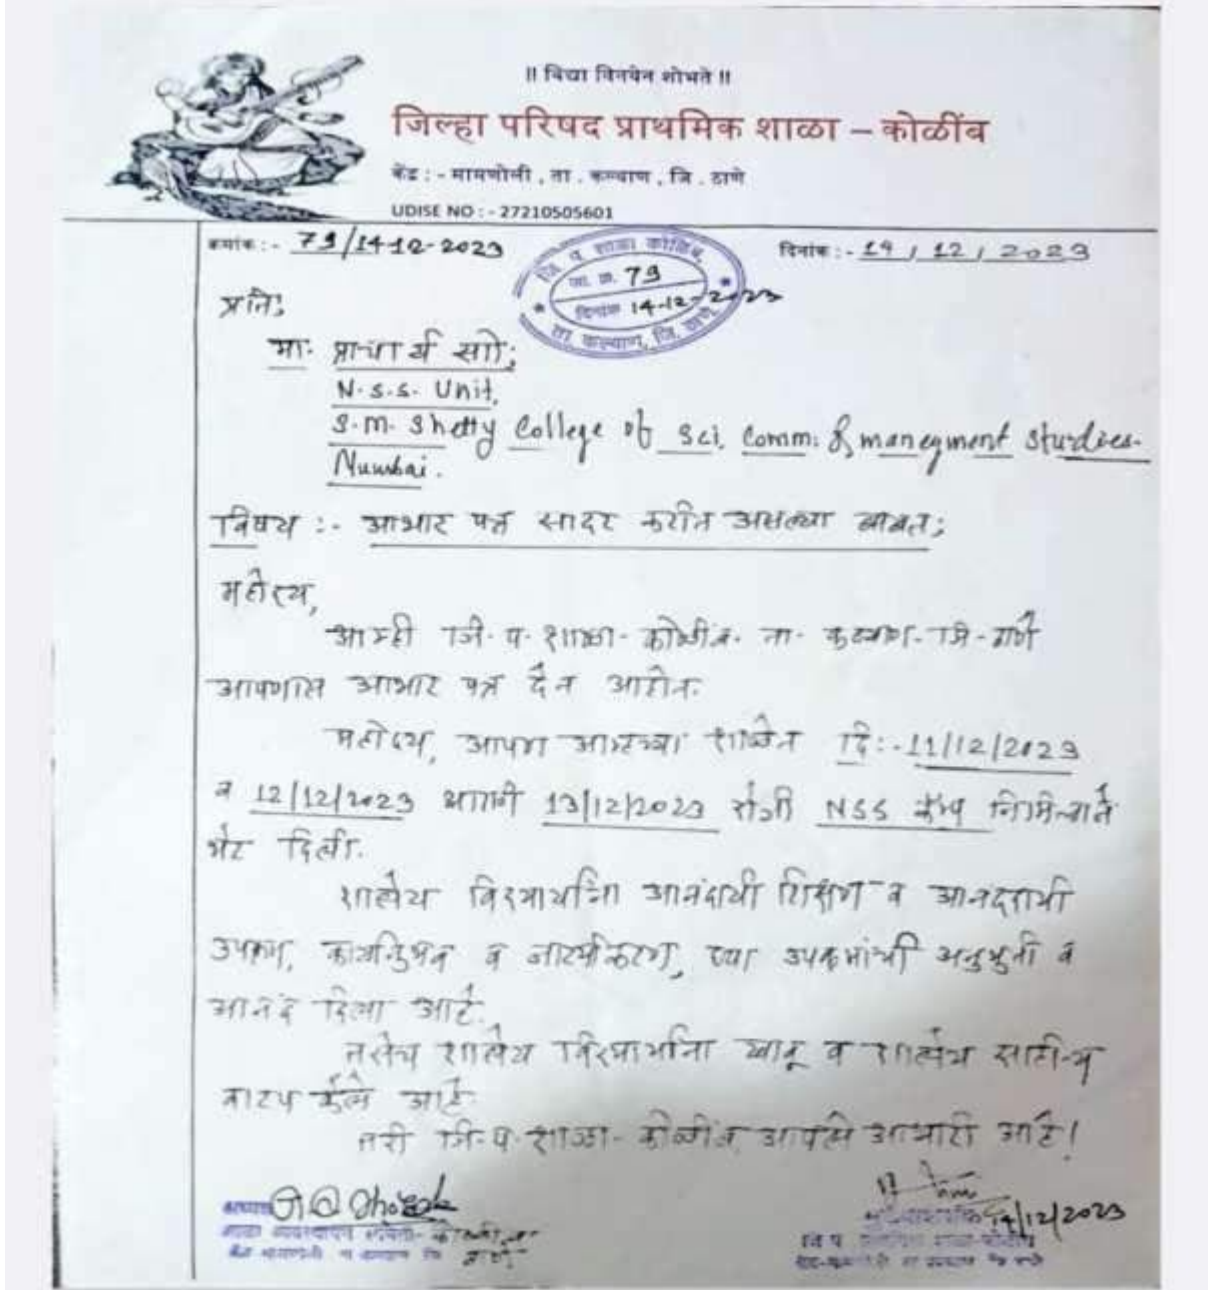 ॥ विद्या विनयेन शोभते ॥
जिल्हा परिषद प्राथमिक शाळा – कोळींब
केंद्र : - मामणोली , ता . कल्याण , जि . ठाणे
UDISE NO : - 27210505601
क्रमांक : - 79/14-12-2023
दिनांक : - 14 / 12 / 2023
जि. प. शाळा कोळिंब,
जा. क्र. 79
दिनांक 14-12-2023
ता. कल्याण, जि. ठाणे
प्रति,
मा. प्राचार्य सो,
N.S.S. Unit,
S.M. Shetty College of Sci. Comm. & manegment Sturdies-
Mumbai.
विषय :- आभार पत्र सादर करीत असल्या बाबत,
महोदय,
आम्ही जि. प. शाळा- कोळींब. ता. कल्याण- जि- ठाणे
आपणास आभार पत्र देत आहोत.
महोदय, आपण आमच्या शाळेत दि:-11/12/2023
व 12/12/2023 आणी 13/12/2023 रोजी NSS कॅम्प निमित्ताने
भेट दिली.
शालेय विद्यार्थ्यांना आनंदायी शिक्षण व आनंददायी
उपक्रम, कार्यानुभव व नाट्यीकरण, च्या उपक्रमांची अनुभुती व
आनंद दिला आहे.
तसेच शालेय विद्यार्थ्यांना खाऊ व शालेय साहीत्य
वाटप केले आहे.
तरी जि. प. शाळा- कोळींब आपले आभारी आहे!
अध्यक्ष
शाळा व्यवस्थापन समिती- कोळींब
केंद्र मामणोली ता कल्याण जि ठाणे
14/12/2023
मुख्याध्यापक
जि प प्राथमिक शाळा-कोळींब
केंद्र-मामणोली ता कल्याण जि ठाणे